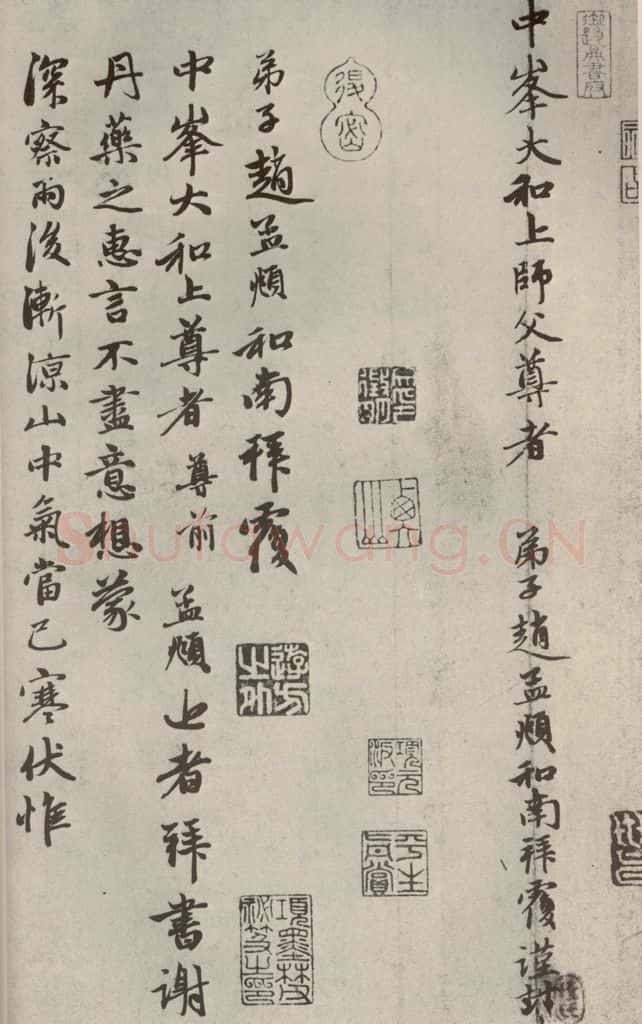 中峯大和上師父尊者　弟子趙孟頫和南拜覆謹封
弟子趙孟頫和南拜覆
中峯大和上尊者尊前　孟頫上者拜書謝
丹藥之惠言不盡意想蒙
深察雨後漸涼山中氣當已寒伏惟
項元汴印
平生真賞
項墨林父祕笈之印
Shufawang.CN